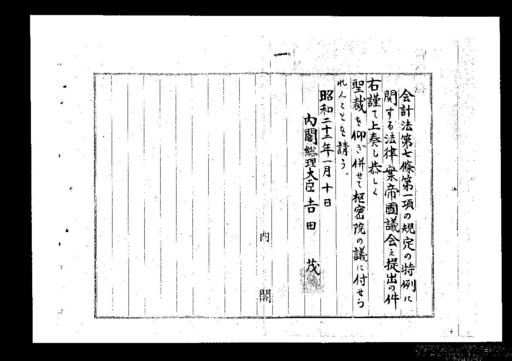 会計法第七條第一項の規定の特例に
関する法律案帝國議会え提出の件
右謹て上奏し恭しく
聖裁を仰ぎ併せて枢密院の議に付せら
れんことを請う。
昭和二十二年一月十日
内閣総理大臣吉田茂
内閣